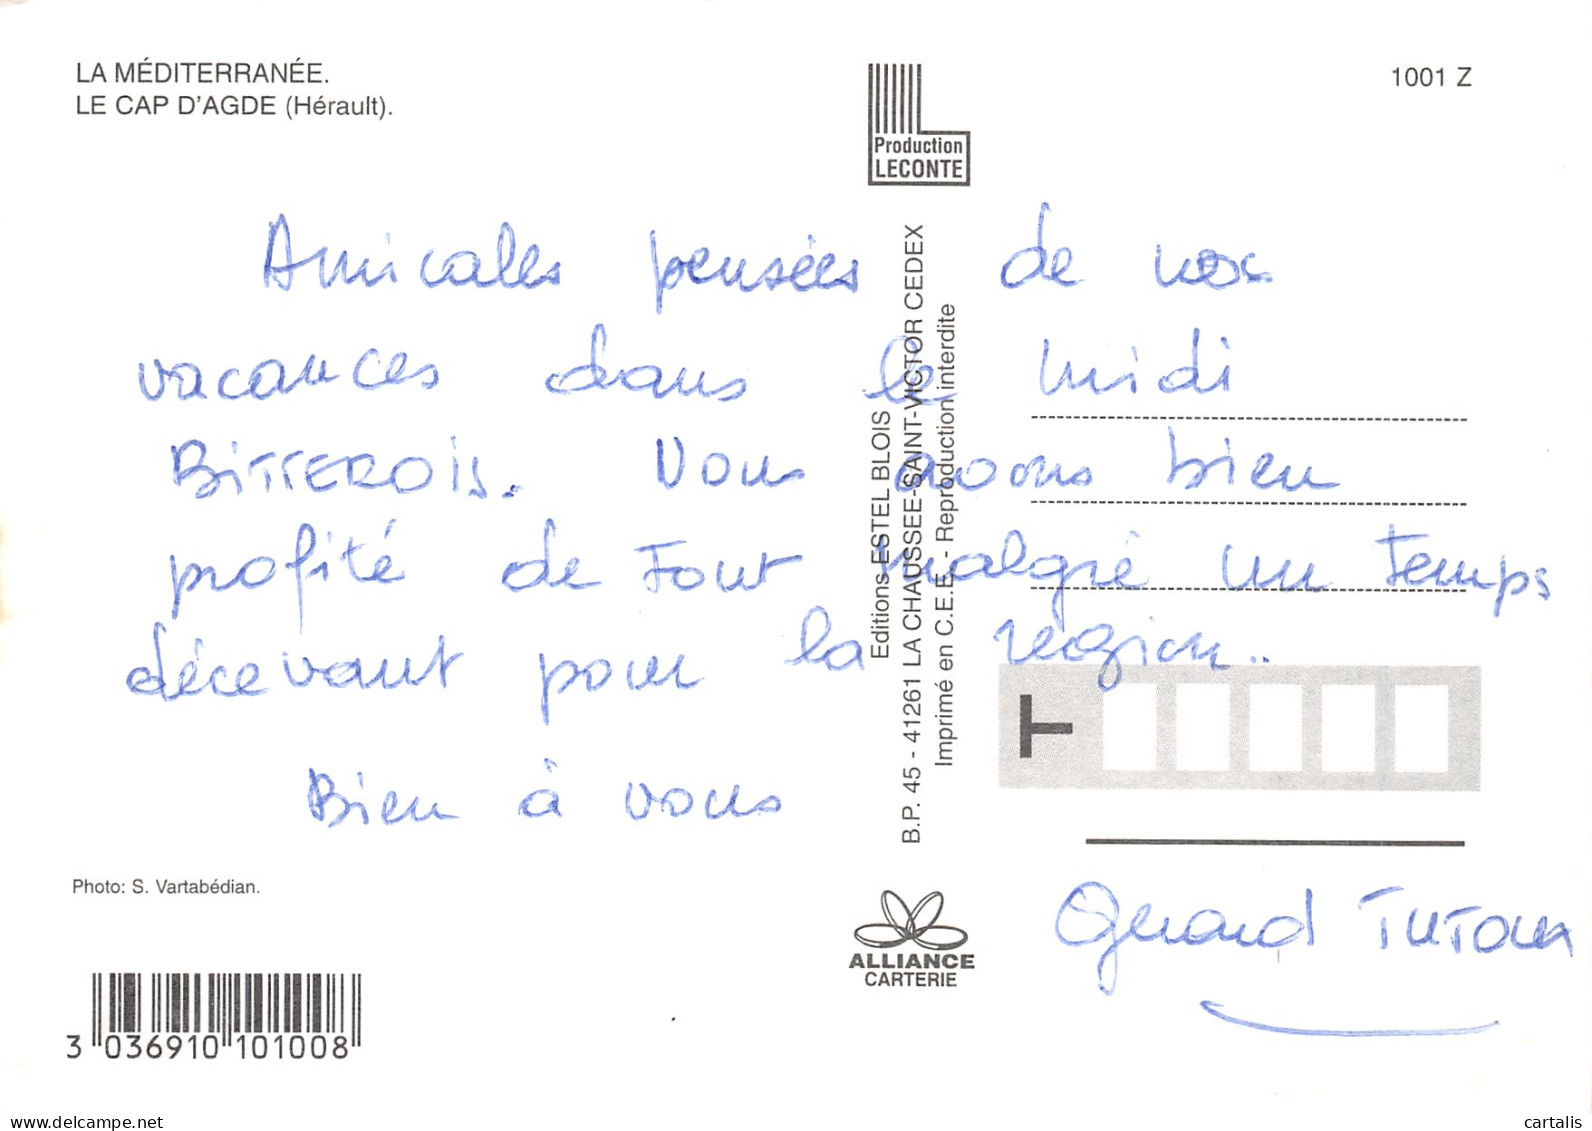 LA MÉDITERRANÉE.
LE CAP D'AGDE (Hérault).
1001 Z
Production
LECONTE
Amicalles pensées de nos
vacances dans le midi
BiTTEROiS. Nous avons bien
profité de Tout malgré un Temps
décevant pour la région..
Bien à vous
Editions ESTEL BLOIS
B.P. 45 - 41261 LA CHAUSSEE-SAINT-VICTOR CEDEX
Imprimé en C.E.E. - Reproduction interdite
T
Photo: S. Vartabédian.
ALLIANCE
CARTERIE
Gerard
3 036910 101008
www.delcampe.net
cartalis